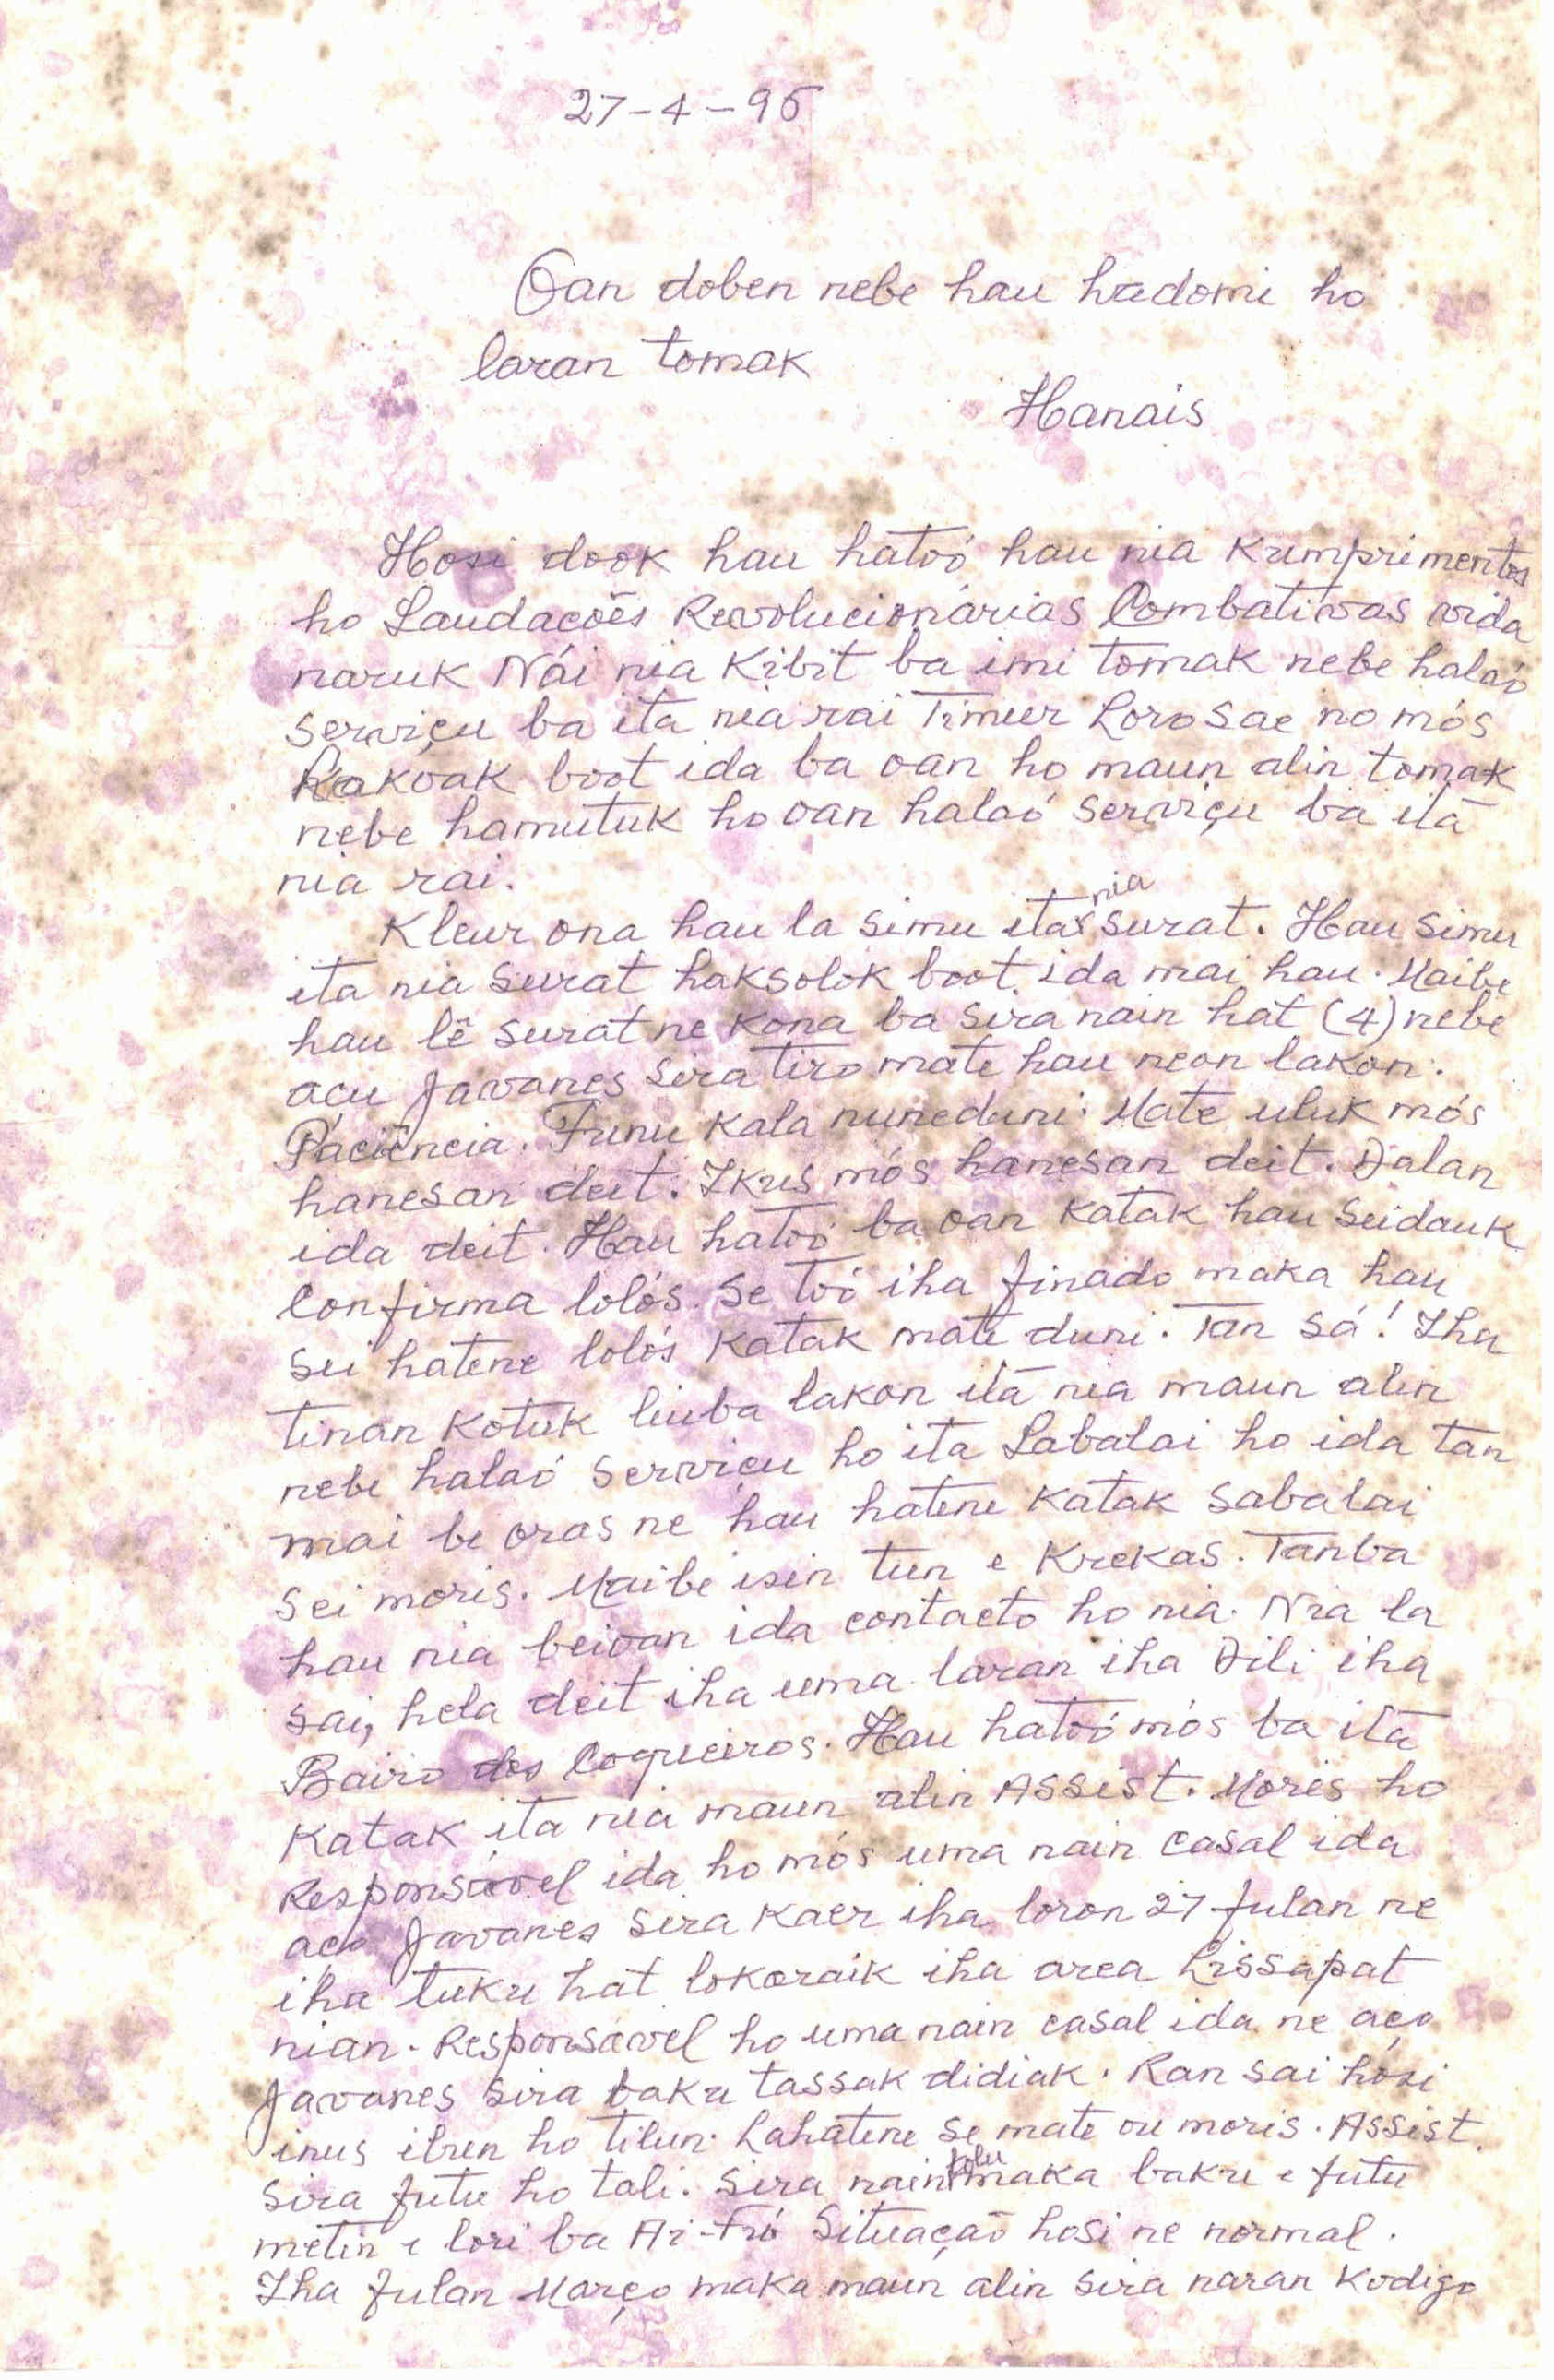 27-4-96
Oan doben nebe hau hadomi ho
laran tomak
Hanais
Hosi dook hau hatoó hau nia Kumprimentos
ho Saudacões Revolucionárias Combativas vida
naruk Nái nia Kibit ba imi tomak nebe halaó
serviçu ba ita nia rai Timur Loro Sae no mós
Rakoak boot ida ba oan ho maun alin tomak
nebe hamutuk ho oan halaó serviçu ba ita
nia rai.
Kleur ona hau la simu ita nia surat. Hau simu
ita nia surat haksolok boot ida mai hau. Maibe
hau lê surat ne kona ba sira nain hat (4) nebe
açu Javanes sira tiro mate hau neon lakon.
Paciência. Funu Kala nuneduni. Mate uluk mós
hanesan deit. Ikus mós hanesan deit. Dalan
ida deit. Hau hatoó ba oan Katak hau seidauk
confirma lolós. Se toó iha finado maka hau
sei hatene lolós Katak mate duni. Tan sá! Iha
tinan Kotuk liuba lakon ita nia maun alin
nebe halaó serviçu ho ita Sabalai ho ida tan
mai be oras ne hau hatene Katak Sabalai
sei moris. Maibe isin tun e Krekas. Tanba
hau nia beioan ida contacto ho nia. Nia la
sai, hela deit iha uma laran iha Dili iha
Bairo dos Coqueiros. Hau hatoó mós ba ita
Katak ita nia maun alin Assist. Moris ho
Responsavel ida ho mós uma nain casal ida
aço Javanes sira Kaer iha loron 27 fulan ne
iha tuku hat lokoraik iha area Lissapat
nian. Responsavel ho uma nain casal ida ne aço
Javanes sira baku tassak didiak. Ran sai hósi
inus ibun ho tilun. Lahatene se mate ou moris. Assist.
sira futu ho tali. Sira nain tolu maka baku e futu
metin e lori ba Ai-Fuó Situação hosi ne normal.
Iha fulan Março maka maun alin sira naran Kodigo